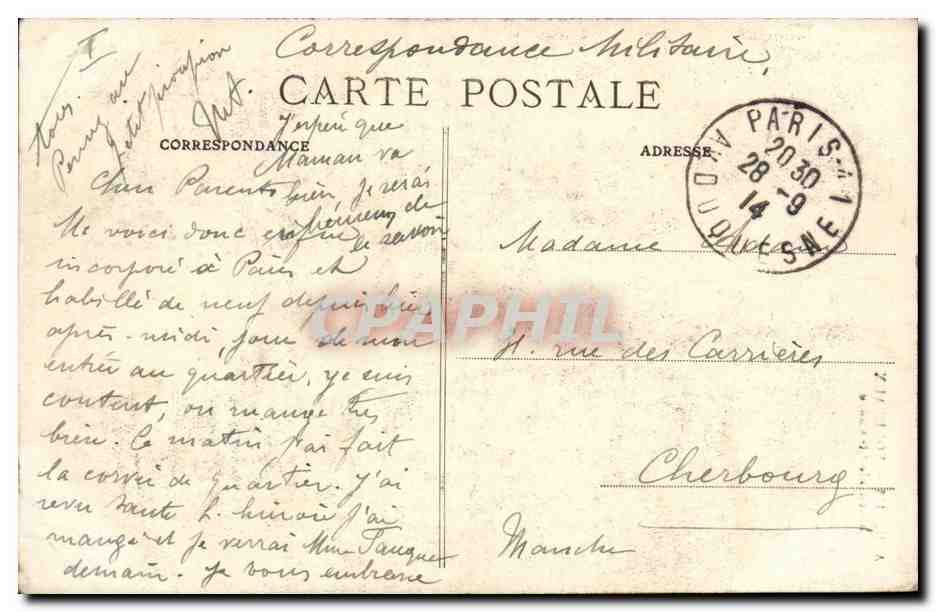 Correspondance Militaire,
CARTE POSTALE
CORRESPONDANCE
ADRESSE
PARIS
20 30
28 -9
14
Chers Parents
Me voici donc enfin
incorporé à Paris et
habillé de neuf depuis hier
après-midi, jour de mon
entrée au quartier, je suis
content, on mange très
bien. Ce matin j'ai fait
la corvée de quartier. J'ai
revu tante L. j'ai
mangé et je verrai Mme
demain. Je vous embrasse
tous.
J'espère que
Maman va
bien, je serai
heureux de
le savoir
Madame
rue des Carrières
Cherbourg
Manche
CPAPHIL